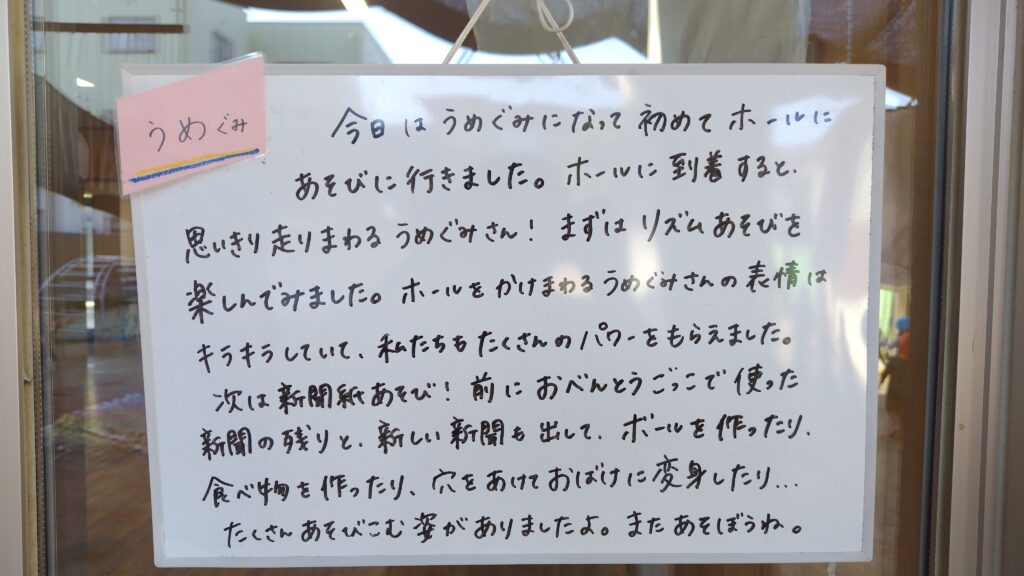 うめぐみ
今日はうめぐみになって初めてホールに
あそびに行きました。ホールに到着すると、
思いきり走りまわるうめぐみさん！まずはリズムあそびを
楽しんでみました。ホールをかけまわるうめぐみさんの表情は
キラキラしていて、私たちもたくさんのパワーをもらえました。
次は新聞紙あそび！前におべんとうごっこで使った
新聞の残りと、新しい新聞も出して、ボールを作ったり、
食べ物を作ったり、穴をあけておばけに変身したり...
たくさんあそびこむ姿がありましたよ。またあそぼうね。